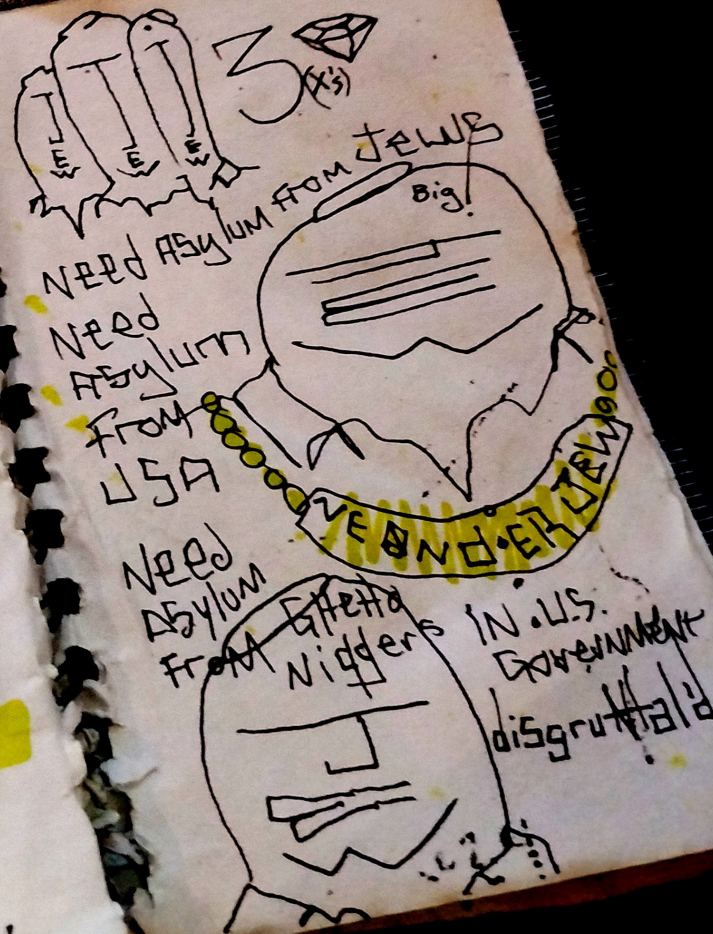 3
(x's)
JEW JEW JEW
Need Asylum From JEWS
Big!
JEW
Need
Asylum
From
USA
NEANDERJEW
Need
Asylum
From Ghetto
Niggers
IN U.S.
Government
JEW